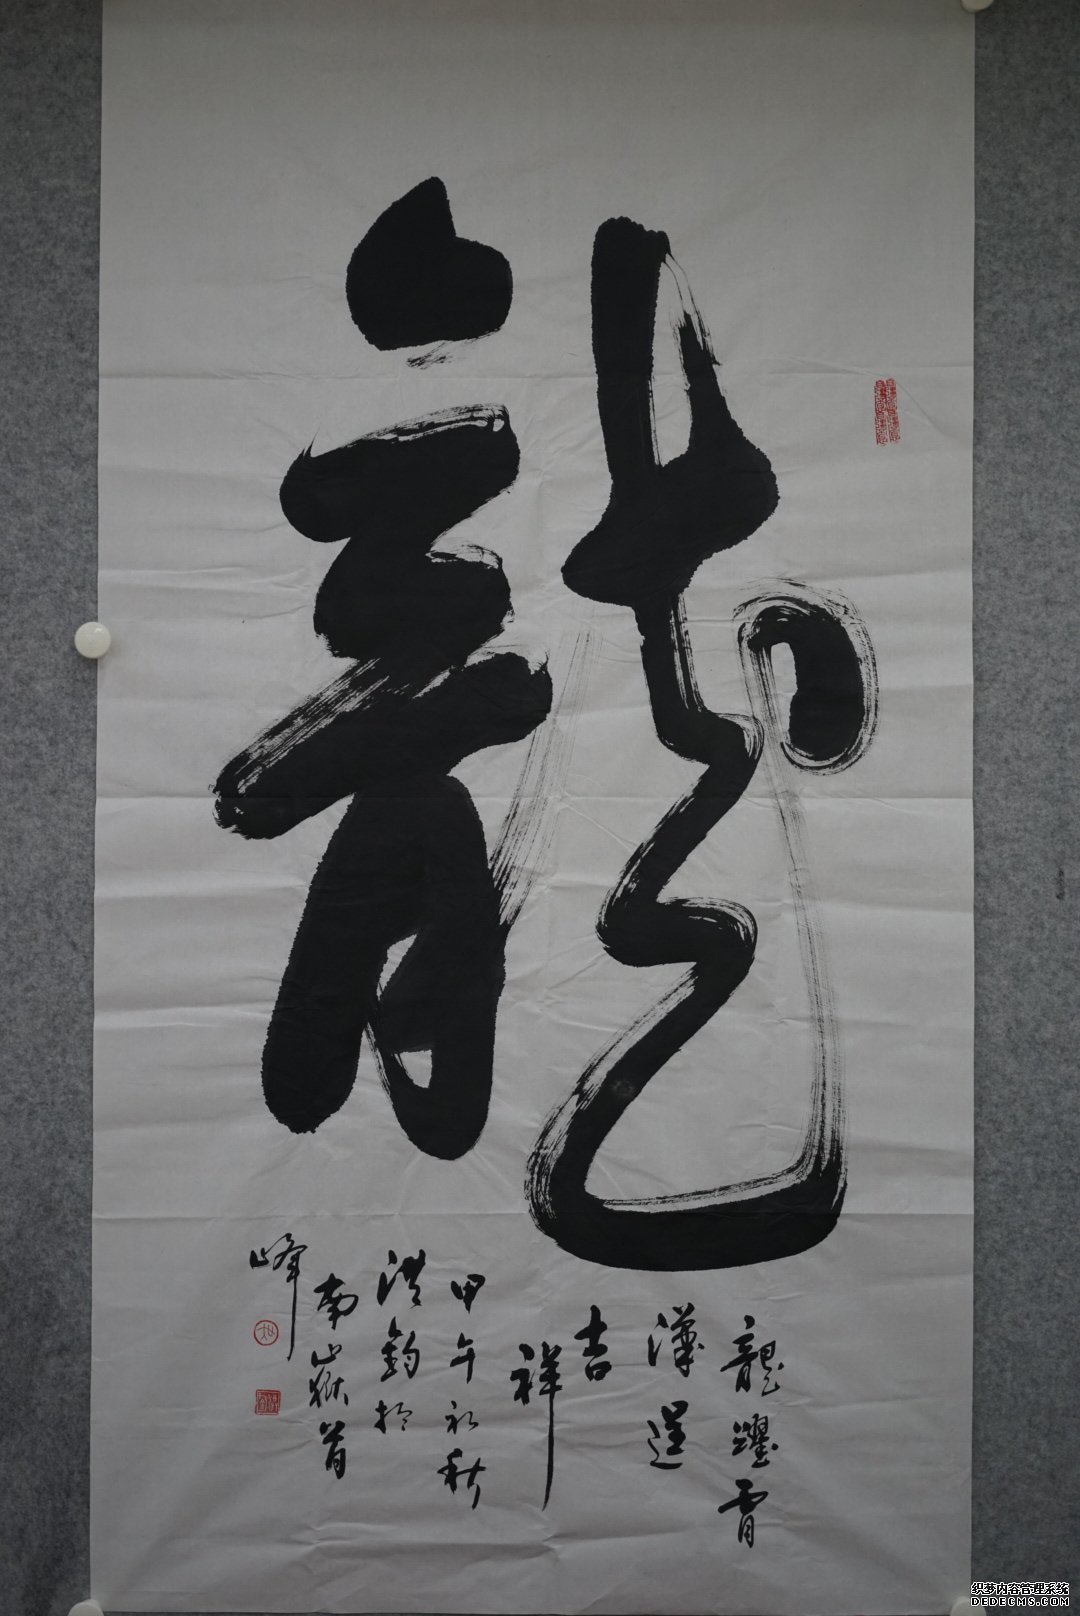 龍
龍躍霄
漢逞
吉
祥
甲午初秋
洪鈞於
南嶽首
峰
织梦内容管理系统
DEDECMS.COM